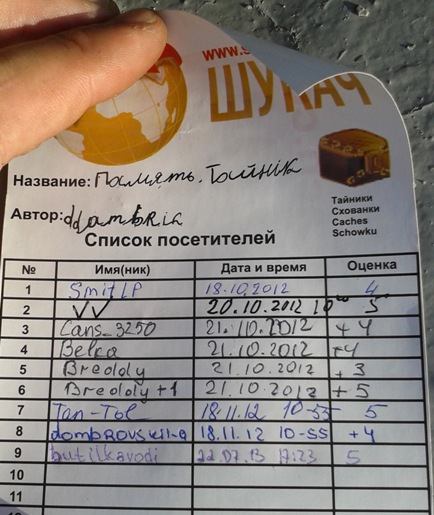 www.s
ШУКАЧ
Название: Память. Тайнік
Автор: ddambria
Тайники
Схованки
Caches
Schowku
Список посетителей
№ Имя(ник) Дата и время Оценка
1 SmitLP 18.10.2012 4
2 VV 20.10.2012 10⁰⁰ 5
3 Cans_3250 21.10.2012 +4
4 Belka 21.10.2012 +4
5 Breololy 21.10.2012 +3
6 Breololy+1 21.10.2012 +5
7 Tan-Tol 18.11.12 10-55 5
8 18.11.12 10-55 +4
9 butilkavodi 22.07.13 17:23 5
10
11